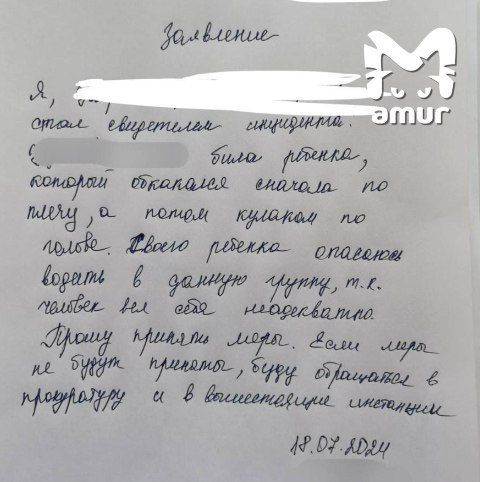 Заявление
amur
Я,
стал свидетелем инцидента.
била ребёнка,
который обкакался сначала по
плечу, а потом кулаком по
голове. Своего ребенка опасаюсь
водить в данную группу, т.к.
человек вел себя неадекватно
Прошу принять меры. Если меры
не будут приняты, буду обращаться в
прокуратуру и в вышестоящие инстанции
18.07.2024